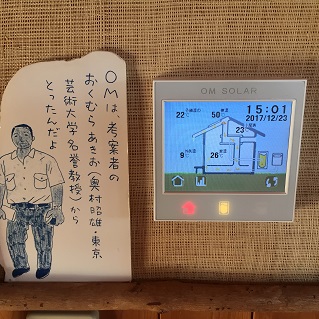 OMは、考案者の
おくむらあきお(奥村昭雄・東京
芸術大学名誉教授)から
とったんだよ
OM SOLAR
22℃
50℃
15:01
2017/12/23
23
9℃
26℃